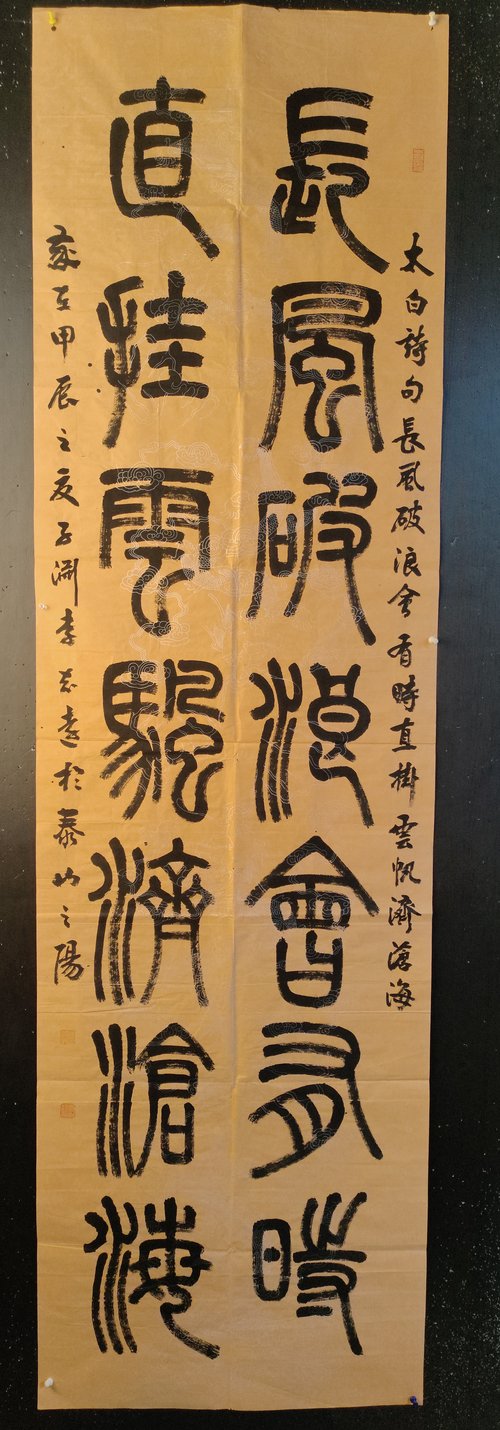 太白詩句長風破浪會有時直掛雲帆濟滄海
長風破浪會有時
直挂雲颿濟滄海
歲在甲辰之夏子淵李志遠於泰山之陽